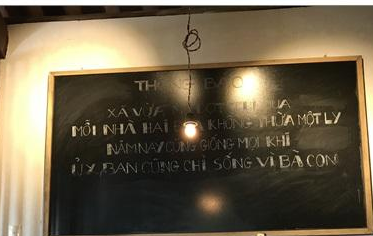 THÔNG BÁO
XÃ VỪA CT QUA
MỖI NHÀ HAI KHÔNG THỪA MỘT LY
NĂM NAY CŨNG GIỐNG MỌI KHI
ỦY BAN CŨNG CHỈ SỐNG VÌ BÀ CON